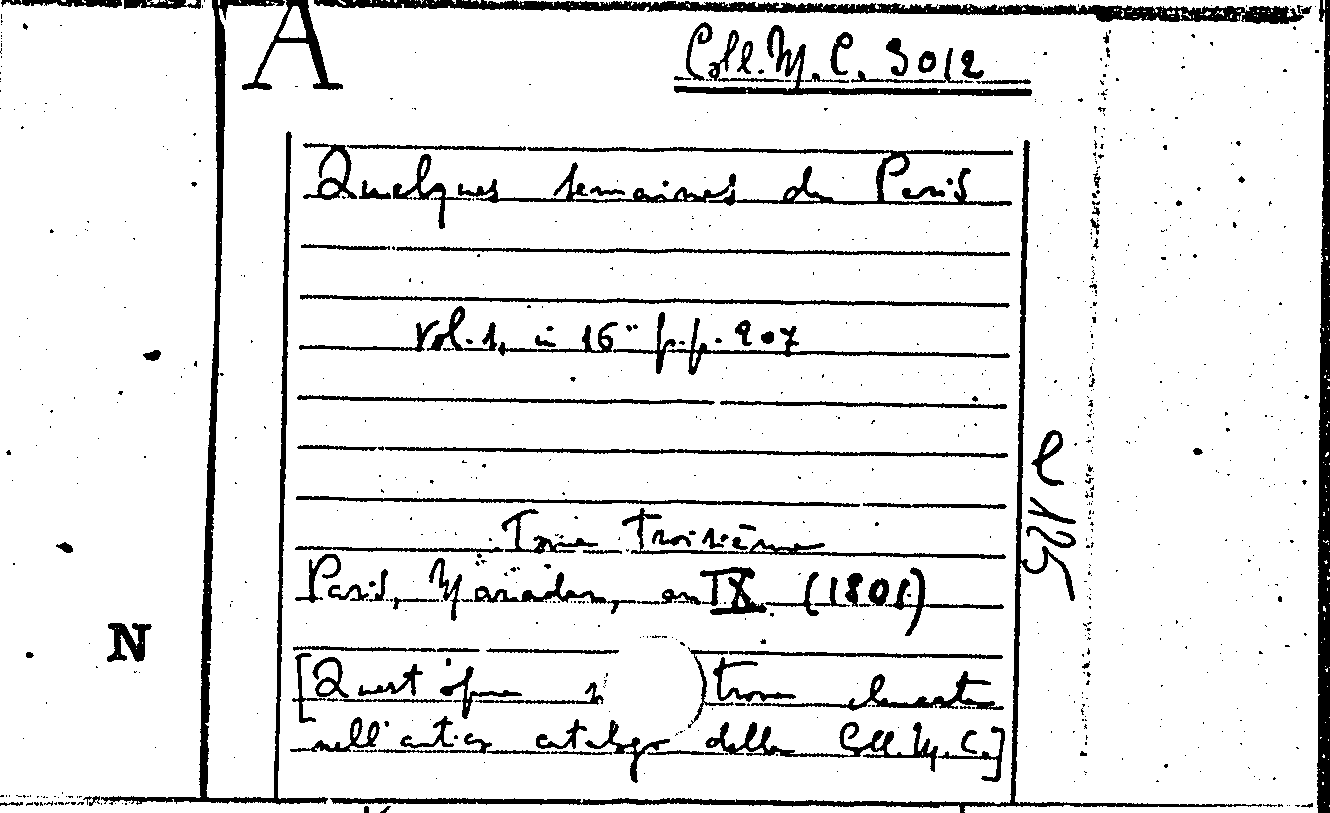 A
Coll. M. C. 3012
Quelques semaines de Paris
Vol. 1, in 16° p.p. 207
Tome Troisième
Paris, Maradan, an IX (1801)
N
[Quest'opera si trova elencata
nell'antico catalogo della Coll. M. C.]
C 125